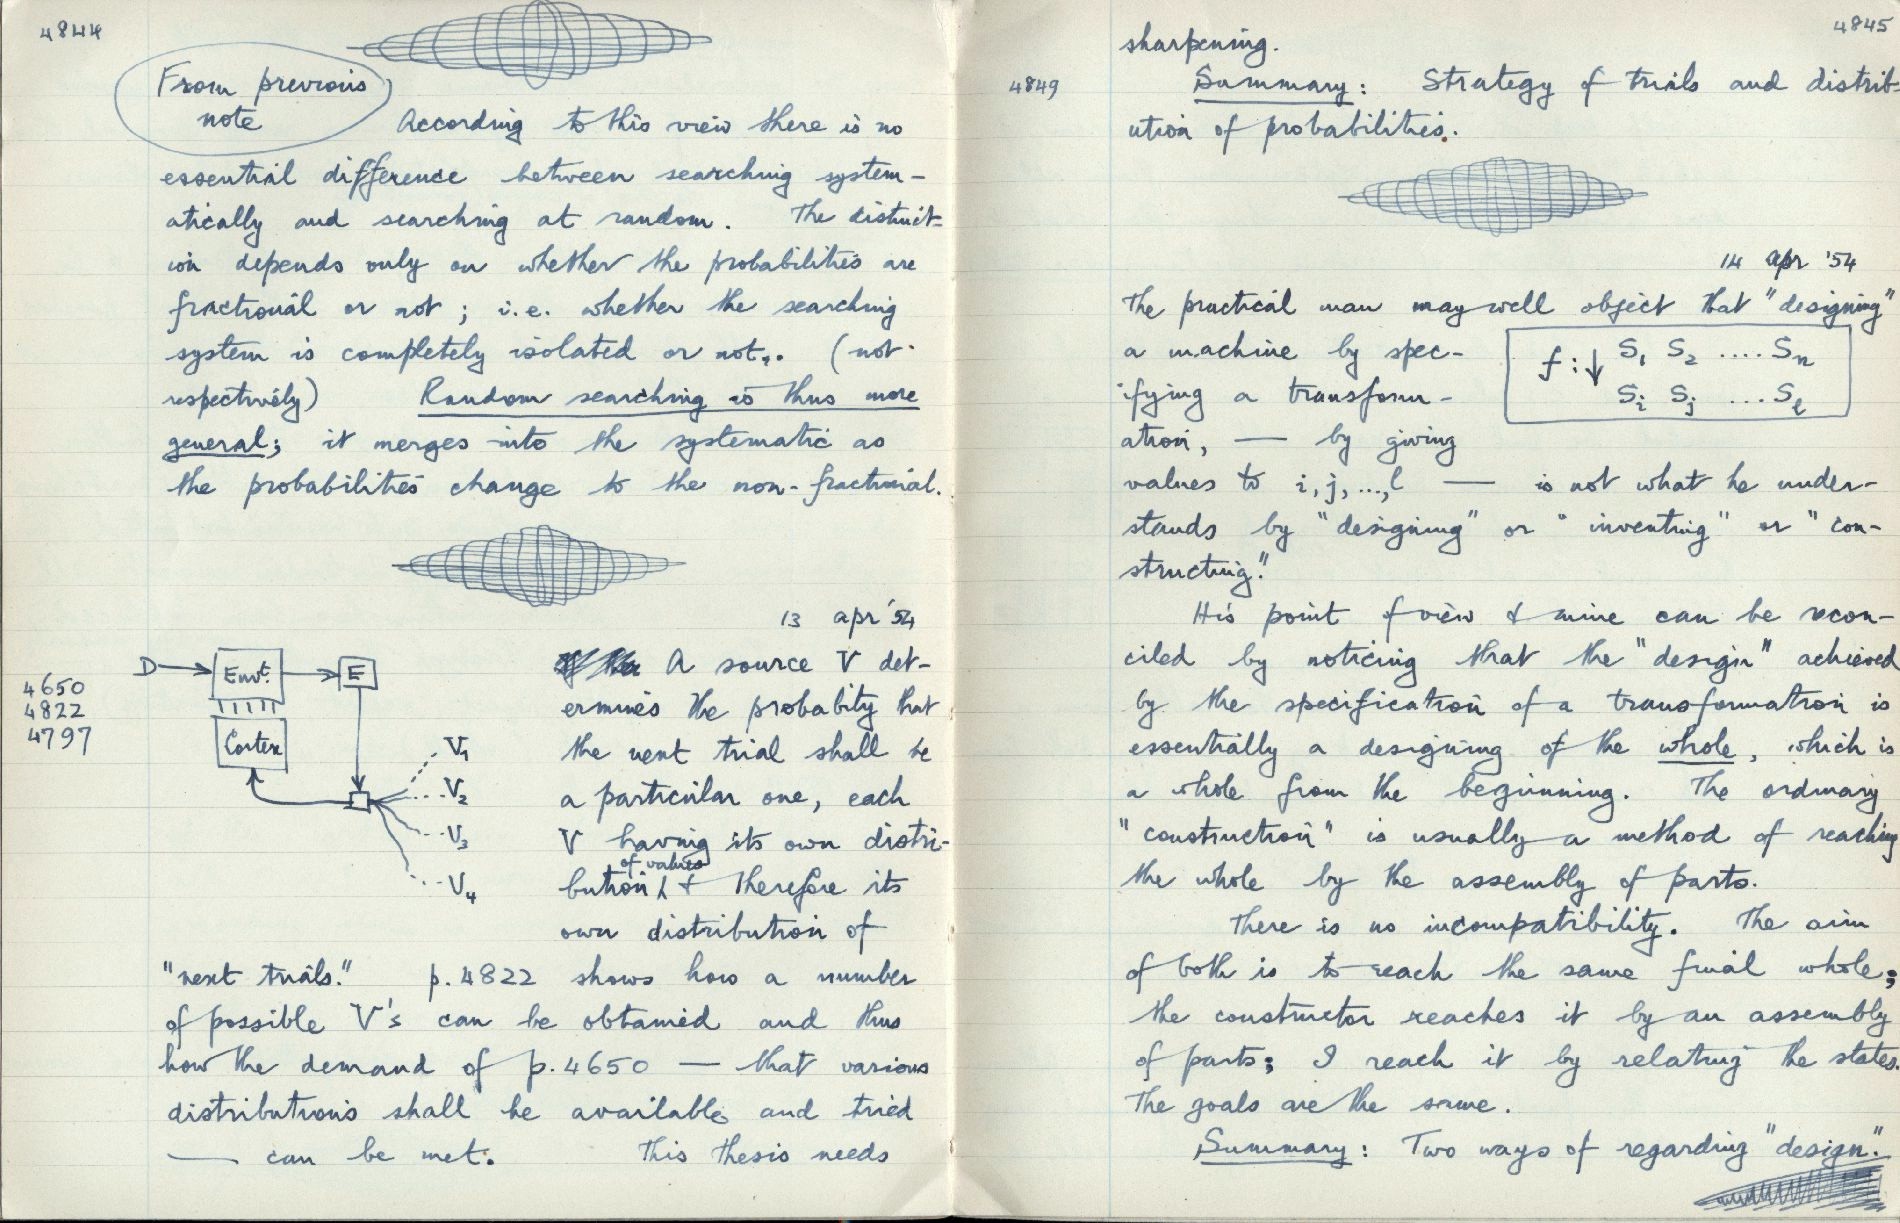 4844
From previous
note
According to this view there is no
essential difference between searching system-
atically and searching at random. The distinct-
ion depends only on whether the probabilities are
fractional or not; i.e. whether the searching
system is completely isolated or not. (not
respectively) Random searching is thus more
general; it merges into the systematic as
the probabilities change to the non-fractional.
13 apr '54
D Envt. E
Cortex
V1
V2
V3
V4
4650
4822
4797
A source V det-
ermines the probabity that
the next trial shall be
a particular one, each
V having its own distri-
of values
bution & therefore its
own distribution of
"next trials." p.4822 shows how a number
of possible V's can be obtained and thus
how the demand of p.4650 — that various
distributions shall be available and tried
— can be met. This thesis needs
4845
sharpening.
4849
Summary: Strategy of trials and distrib-
ution of probabilities.
14 apr '54
The practical man may well object that "designing"
a machine by spec-
ifying a transform-
ation, — by giving
f:↓ S1 S2 .... Sn
Si Sj ... Sl
values to i, j, ..., l — is not what he under-
stands by "designing" or "inventing" or "con-
structing."
His point of view & mine can be recon-
ciled by noticing that the "design" achieved
by the specification of a transformation is
essentially a designing of the whole, which is
a whole from the beginning. The ordinary
"construction" is usually a method of reaching
the whole by the assembly of parts.
There is no incompatibility. The aim
of both is to reach the same final whole;
the constructor reaches it by an assembly
of parts; I reach it by relating the states.
The goals are the same.
Summary: Two ways of regarding "design."